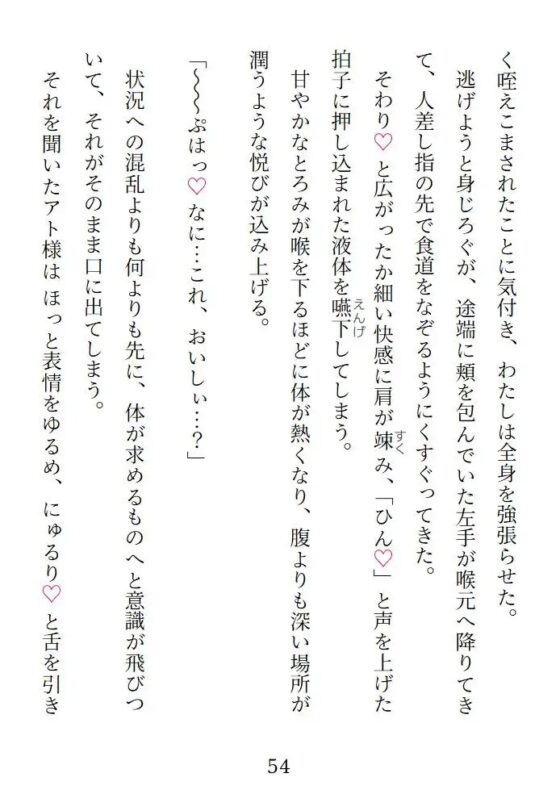 く咥えこまされたことに気付き、わたしは全身を強張らせた。
逃げようと身じろぐが、途端に頬を包んでいた左手が喉元へ降りてき
て、人差し指の先で食道をなぞるようにくすぐってきた。
そわり♡と広がったか細い快感に肩が竦み、「ひん♡」と声を上げた
すく
拍子に押し込まれた液体を嚥下してしまう。
えんげ
甘やかなとろみが喉を下るほどに体が熱くなり、腹よりも深い場所が
潤うような悦びが込み上げる。
「～～～ぷはっ♡なに…これ、おいしぃ…？」
状況への混乱よりも何よりも先に、体が求めるものへと意識が飛びつ
いて、それがそのまま口に出てしまう。
それを聞いたアト様は ほっと表情をゆるめ、にゅるり♡と舌を引き
54